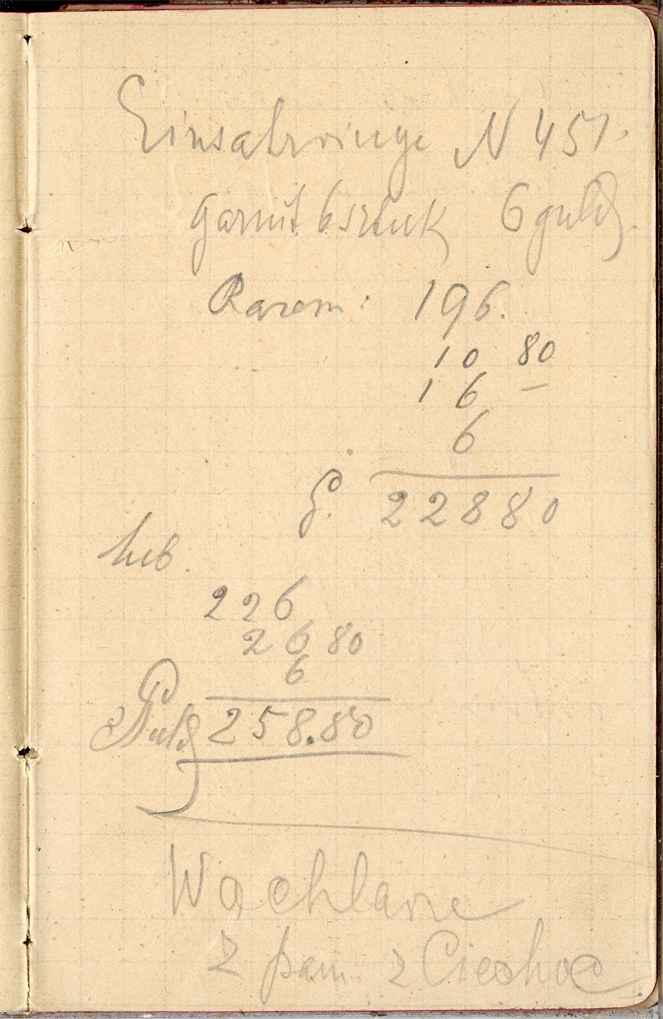 Einsatzringe N 451.
garnit 6 sztuk 6 guld.
Razem: 196.
10 80
16 —
6
G. 22880
lub
226
26 80
6
Guld 258.80
Wachlarze
2 pam. z Ciechoc